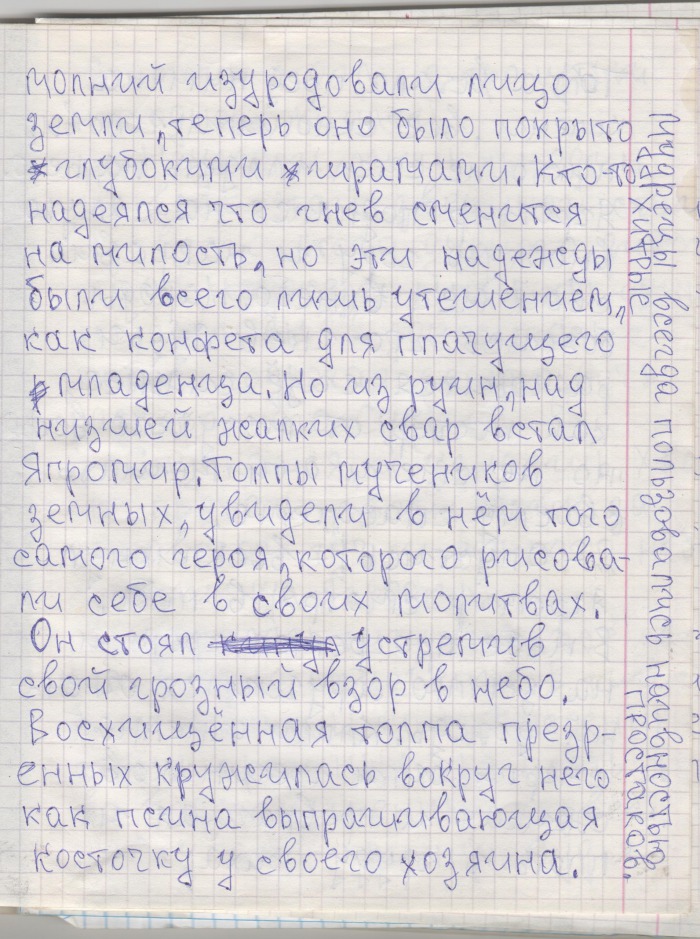 молний изуродовали лицо
земли, теперь оно было покрыто
глубокими шрамами. Кто-то
надеялся что гнев сменится
на милость, но эти надежды
были всего лишь утешением,
как конфета для плачущего
младенца. Но из руин, над
низшей жалких свар встал
Ягромир. Толпы мучеников
земных, увидели в нём того
самого героя, которого рисова-
ли себе в своих молитвах.
Он стоял устремив
свой грозный взор в небо.
Восхищённая толпа презр-
енных кружилась вокруг него
как псина выпрашивающая
косточку у своего хозяина.
Мудрецы всегда пользовались наивностью
хитрые простаков.